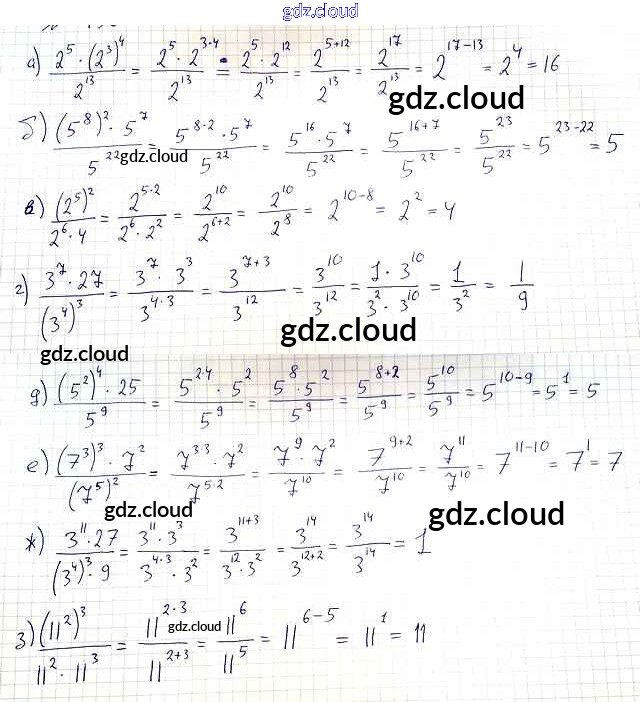 gdz.cloud
а) (2^5 · (2^3)^4)/2^13 = (2^5 · 2^(3·4))/2^13 = (2^5 · 2^12)/2^13 = 2^(5+12)/2^13 = 2^17/2^13 = 2^(17-13) = 2^4 = 16
gdz.cloud
б) ((5^8)^2 · 5^7)/5^22 = (5^(8·2) · 5^7)/5^22 = (5^16 · 5^7)/5^22 = 5^(16+7)/5^22 = 5^23/5^22 = 5^(23-22) = 5
gdz.cloud
в) (2^5)^2/(2^6 · 4) = 2^(5·2)/(2^6 · 2^2) = 2^10/2^(6+2) = 2^10/2^8 = 2^(10-8) = 2^2 = 4
г) (3^7 · 27)/(3^4)^3 = (3^7 · 3^3)/3^(4·3) = 3^(7+3)/3^12 = 3^10/3^12 = (1 · 3^10)/(3^2 · 3^10) = 1/3^2 = 1/9
gdz.cloud
gdz.cloud
д) ((5^2)^4 · 25)/5^9 = (5^(2·4) · 5^2)/5^9 = (5^8 · 5^2)/5^9 = 5^(8+2)/5^9 = 5^10/5^9 = 5^(10-9) = 5^1 = 5
е) ((7^3)^3 · 7^2)/(7^5)^2 = (7^(3·3) · 7^2)/7^(5·2) = (7^9 · 7^2)/7^10 = 7^(9+2)/7^10 = 7^11/7^10 = 7^(11-10) = 7^1 = 7
gdz.cloud
gdz.cloud
ж) (3^11 · 27)/((3^4)^3 · 9) = (3^11 · 3^3)/(3^(4·3) · 3^2) = 3^(11+3)/(3^12 · 3^2) = 3^14/3^(12+2) = 3^14/3^14 = 1
з) (11^2)^3/(11^2 · 11^3) = 11^(2·3)/11^(2+3) = 11^6/11^5 = 11^(6-5) = 11^1 = 11
gdz.cloud
gdz.cloud